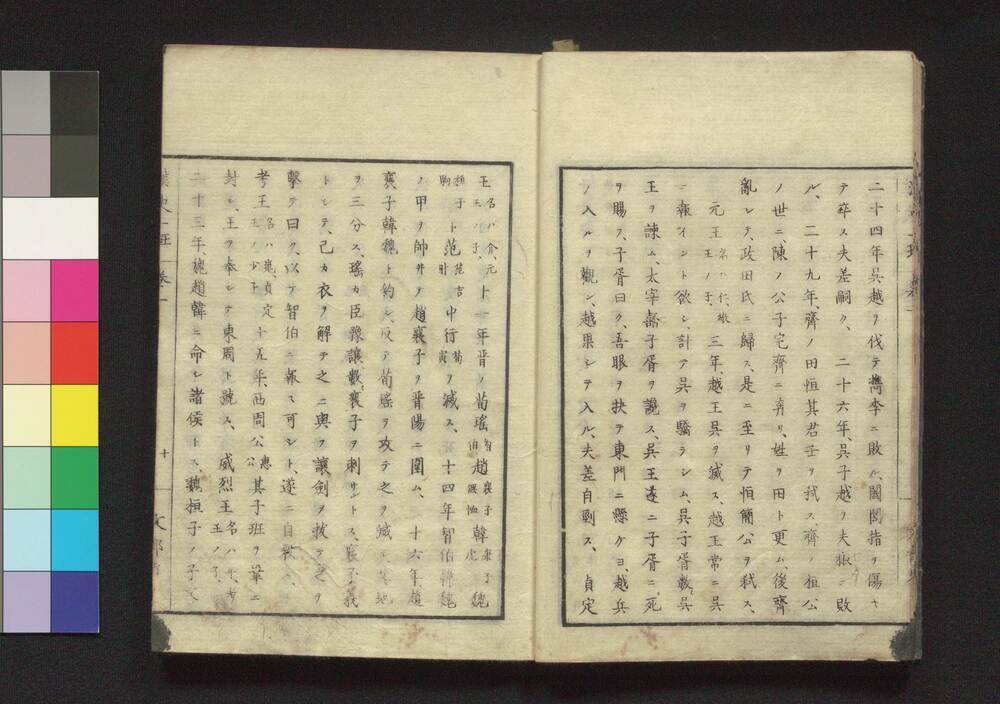 二十四年呉越ヲ伐テ檇李ニ敗ル、闔閭指ヲ傷キ
テ卒ス夫差嗣ク、二十六年、呉子越ヲ夫椒ニ敗
ル、二十九年、齊ノ田恒其君壬ヲ弑ス、齊ノ桓公
ノ世ニ、陳ノ公子完齊ニ奔リ、姓ヲ田ト更ム、後齊
亂レテ、政田氏ニ歸ス、是ニ至リテ恒簡公ヲ弑ス、
元王 名ハ仁、敬王ノ子、三年、越王呉ヲ滅ス、越王常ニ呉
ニ報イント欲シ、計テ呉ヲ驕ラシム、呉子胥數呉
王ヲ諫ム、太宰嚭子胥ヲ讒ス、呉王遂ニ子胥ニ死
ヲ賜フ、子胥曰ク、吾眼ヲ抉テ東門ニ懸ケヨ、越兵
ノ入ルヲ觀ン、越果シテ入ル、夫差自剄ス、貞定
王 名ハ介、元王ノ子、十一年晉ノ荀瑤 智伯 趙 襄子無恤 韓 康子虎 魏
桓子駒 ト范 范吉射 中行 荀寅 ヲ滅ス、十四年智伯韓魏
ノ甲ヲ帥井テ趙襄子ヲ晉陽ニ圍ム、十六年、趙
襄子韓魏ト約シ、反テ荀瑤ヲ攻テ之ヲ滅シ其地
ヲ三分ス、瑤カ臣豫讓數襄子ヲ刺サントス、襄子我
トシテ、己カ衣ヲ解テ之ニ與フ讓劍ヲ拔テ之ヲ
擊テ曰ク、以テ智伯ニ報ス可シト、遂ニ自殺ス、
考王 名ハ嵬、貞定王ノ少子、十五年、西周公 惠公 其子班ヲ鞏ニ
封シ、王ヲ奉シテ東周ト號ス、威烈王 名ハ午、考王ノ子、
二十三年、魏趙韓ニ命シ諸侯トス、魏桓子ノ子文
十
文部省